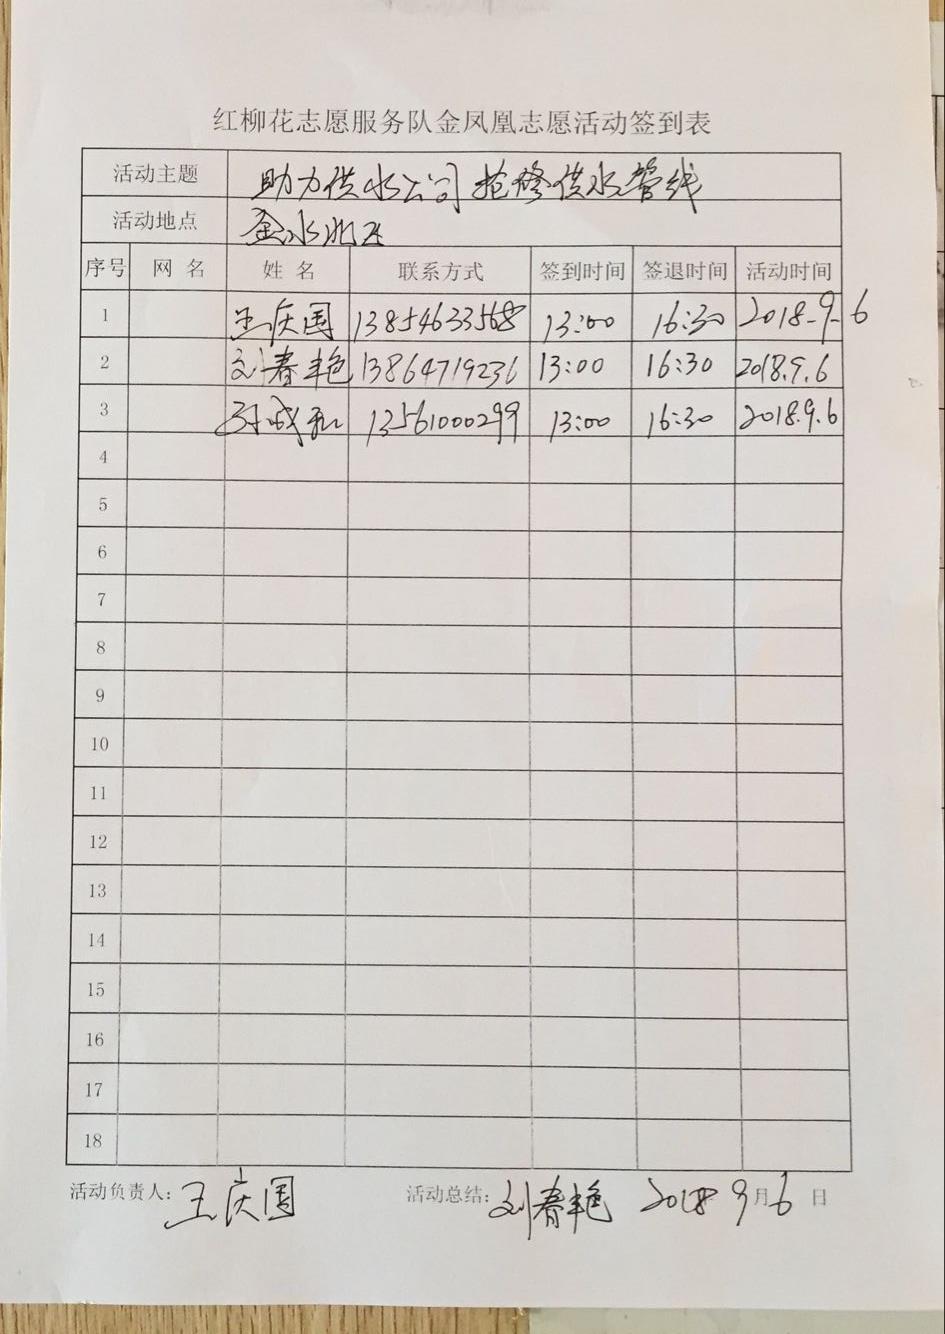 红柳花志愿服务队金凤凰志愿活动签到表
活动主题 助力供水公司抢修供水管线
活动地点 金水
序号 网 名 姓 名 联系方式 签到时间 签退时间 活动时间
1 王庆国 13854633568 13:00 16:30 2018.9.6
2 刘春艳 13864719236 13:00 16:30 2018.9.6
3 孙成 13561000299 13:00 16:30 2018.9.6
4
5
6
7
8
9
10
11
12
13
14
15
16
17
18
活动负责人: 王庆国 活动总结: 刘春艳 2018 9月6日